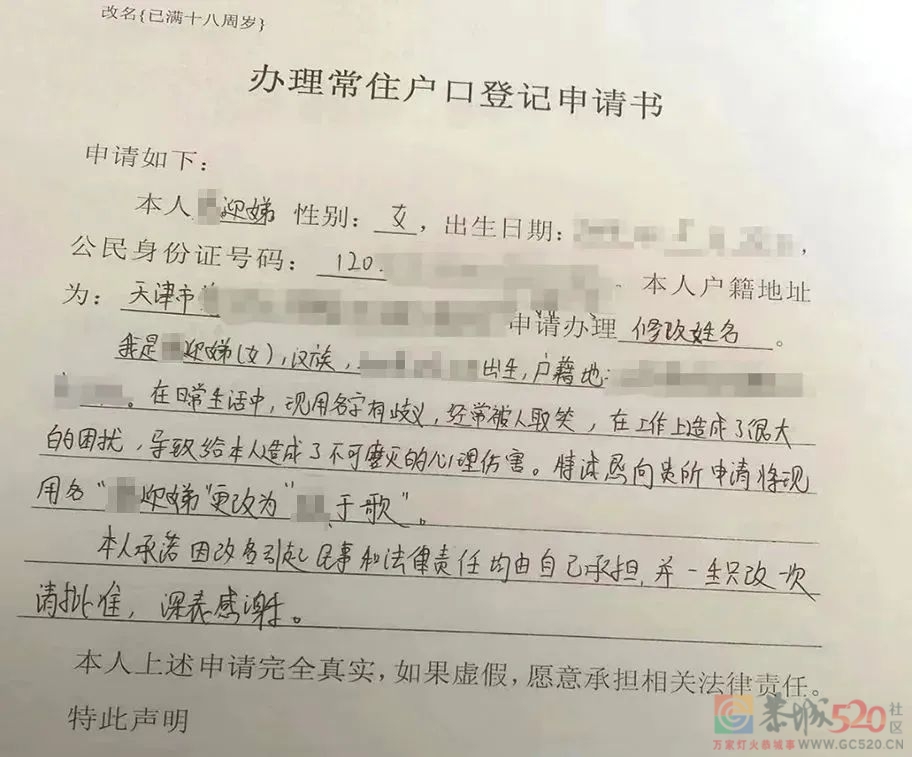 改名{已满十八周岁}
办理常住户口登记申请书
申请如下：
本人 迎娣 性别：女，出生日期：，
公民身份证号码：120. 。本人户籍地址
为：天津市 申请办理 修改姓名 。
我是 迎娣(女)，汉族， 出生，户籍地：
。在日常生活中，现用名字有歧义，经常被人取笑，在工作上造成了很大
的困扰，导致给本人造成了不可磨灭的心理伤害。特诚恳向贵所申请将现
用名“ 迎娣”更改为“ 于歌”。
本人承诺因改名引起民事和法律责任均由自己承担，并一生只改一次
请批准，深表感谢。
本人上述申请完全真实，如果虚假，愿意承担相关法律责任。
特此声明
恭城520社区
万家灯火恭城事WWW.GC520.CN